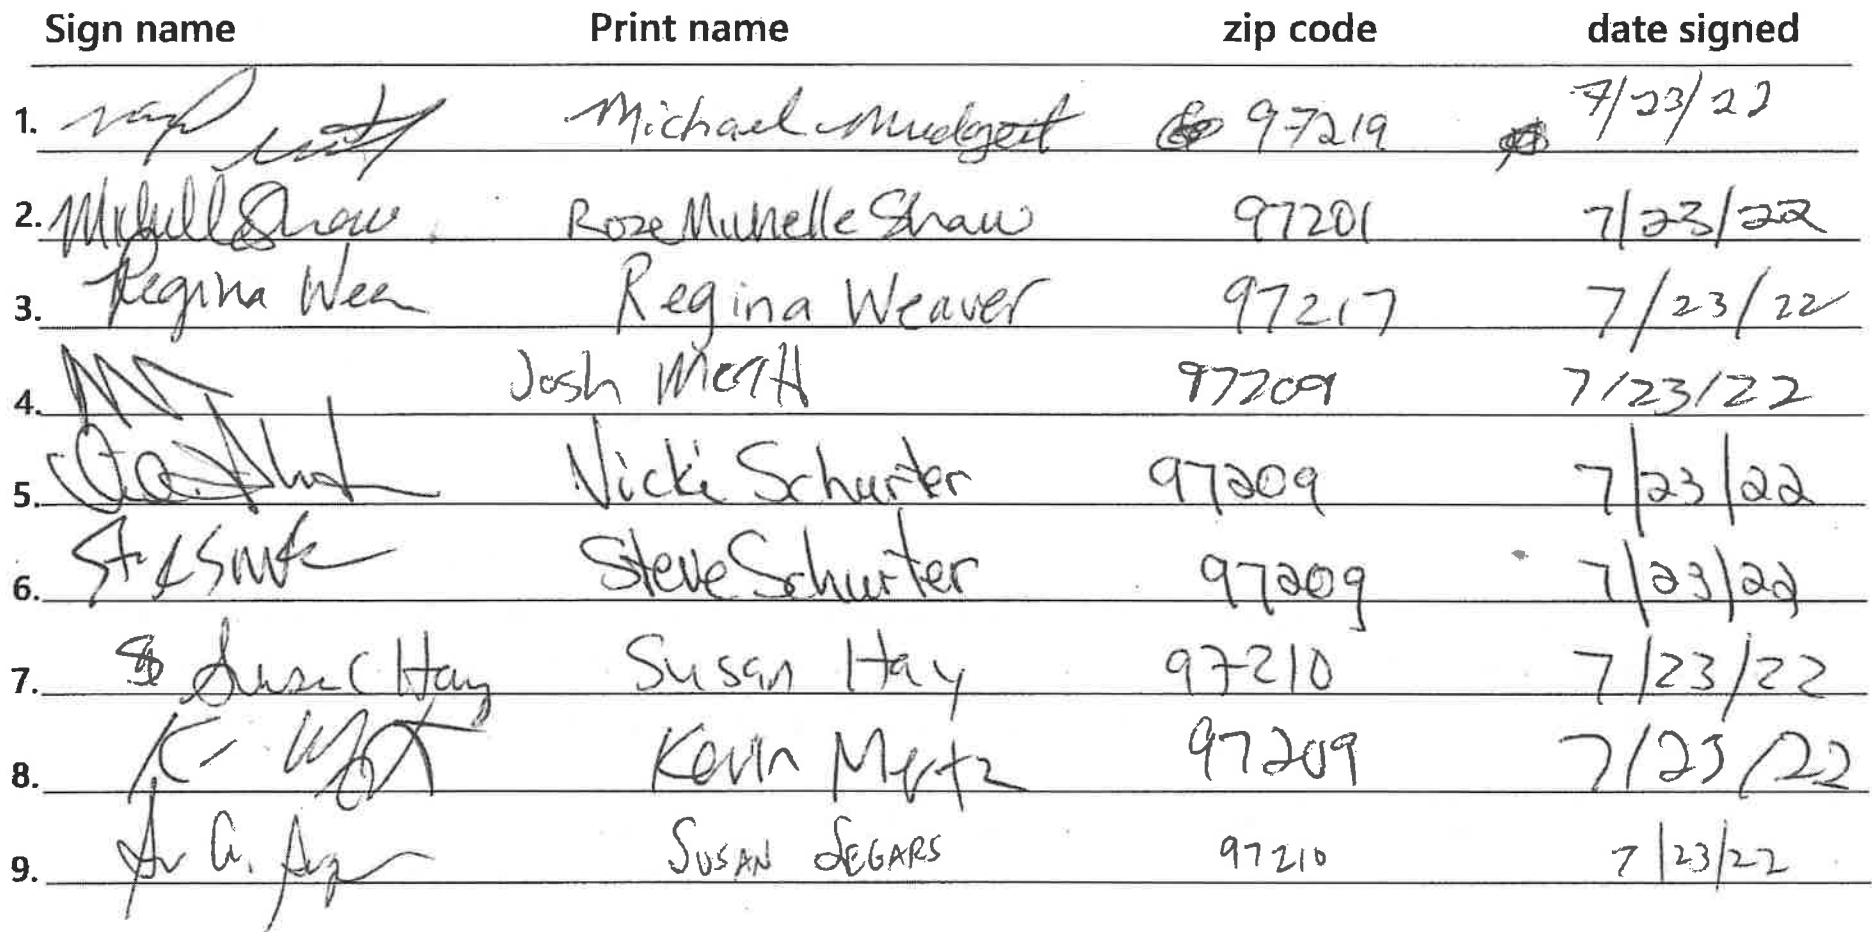 Sign name Print name zip code date signed
1. Michael Mudgett 97219 7/23/22
2. Michelle Shaw Roze Michelle Shaw 97201 7/23/22
3. Regina Wea Regina Weaver 97217 7/23/22
4. Josh 97209 7/23/22
5. Vicki Schurter 97209 7/23/22
6. Steve Schurter 97209 7/23/22
7. Susan C Hay Susan Hay 97210 7/23/22
8. Kevin Mertz 97209 7/23/22
9. SUSAN SEGARS 97210 7/23/22